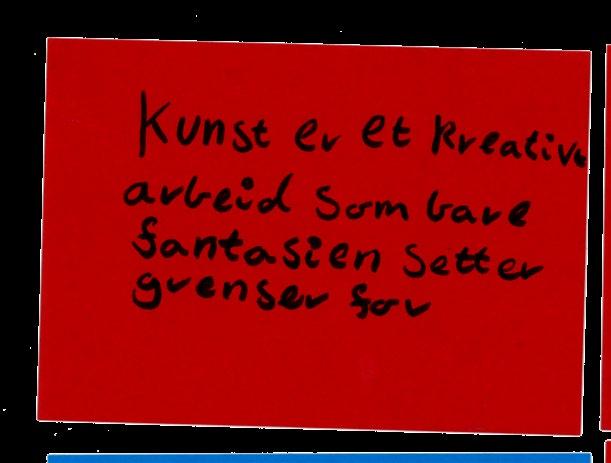 Kunst er et kreativt
arbeid som bare
fantasien setter
grenser for